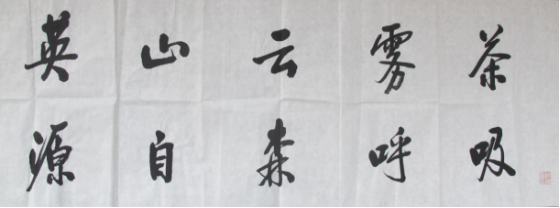 英山云雾茶
源自森呼吸